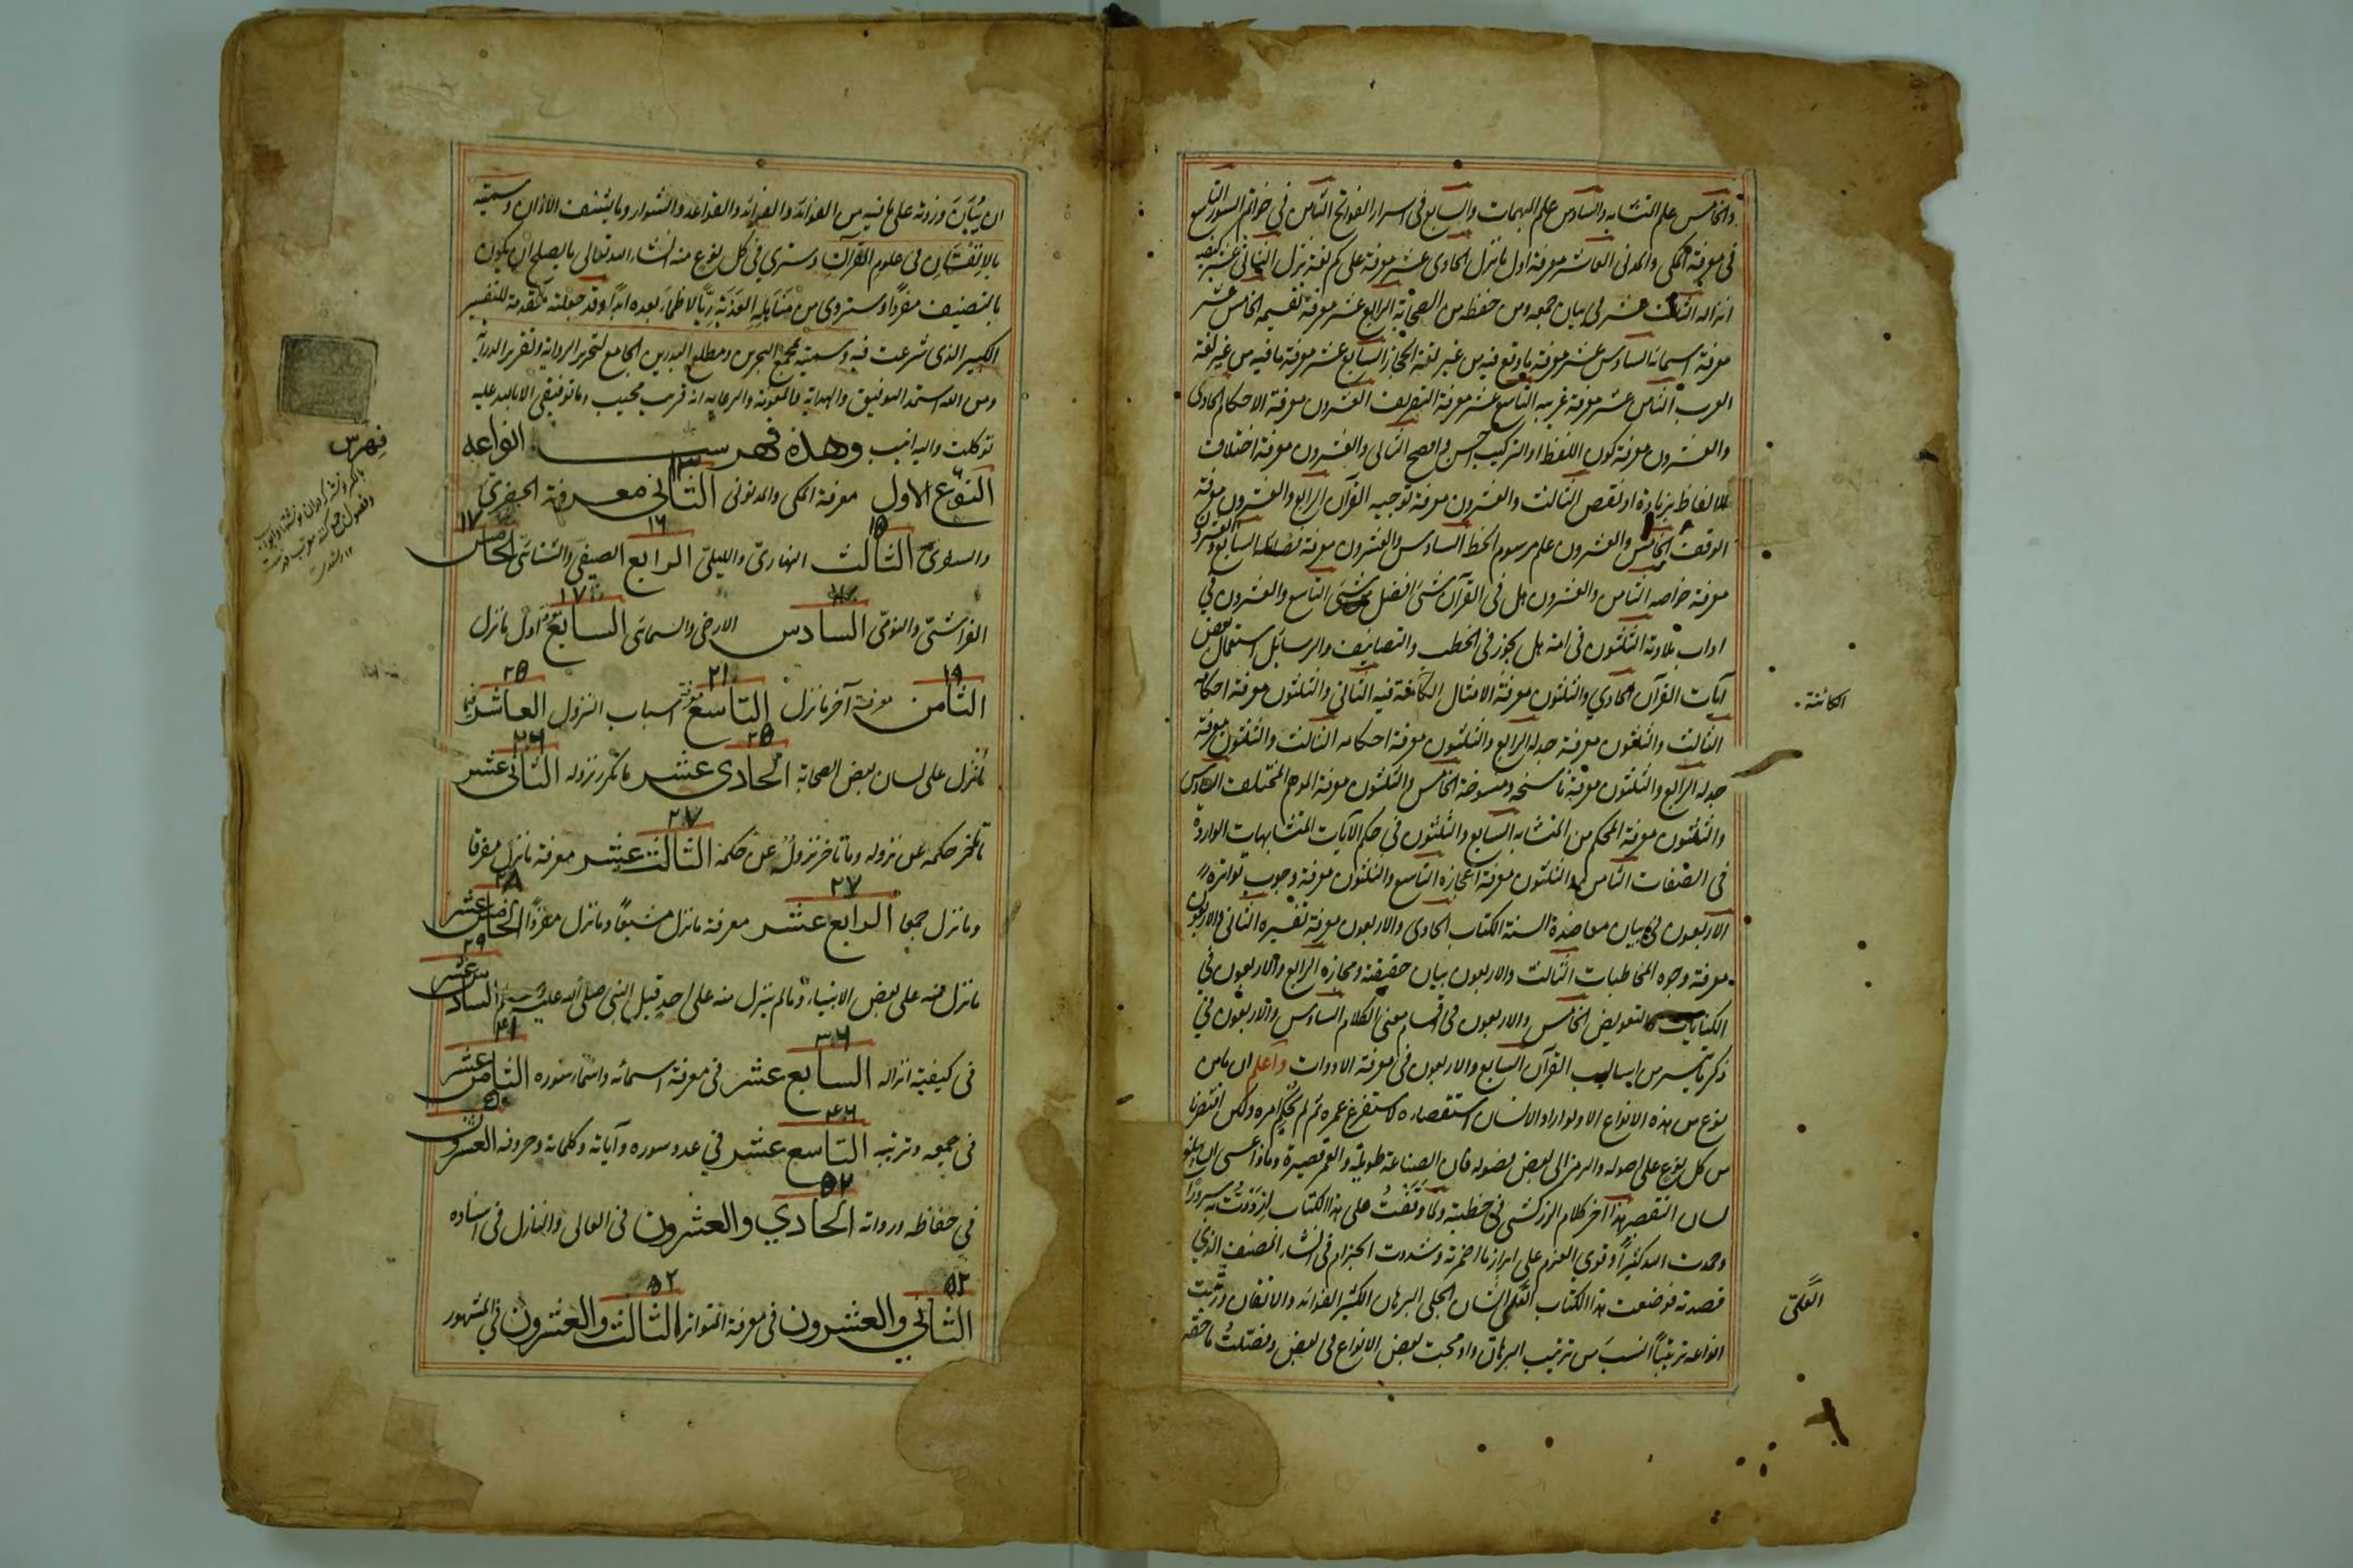 والخامس علم المتشابه والسادس علم المبهمات والسابع فى اسرار الفواتح الثامن فى خواتم السور التاسع
فى معرفة المكى والمدنى العاشر معرفة اول ما نزل الحادى عشر معرفة على كم لغة نزل الثانى عشر كيفية
انزاله الثالث عشر فى بيان جمعه ومن حفظه من الصحابة الرابع عشر معرفة تقسيمه الخامس عشر
معرفة اسمائه السادس عشر معرفة ما وقع فيه من غير لغة الحجاز السابع عشر معرفة ما فيه من غير لغة
العرب الثامن عشر معرفة غريبه التاسع عشر معرفة التصريف العشرون معرفة الاحكام الحادى
والعشرون معرفة كون اللفظ او التركيب احسن وافصح الثانى والعشرون معرفة اختلاف
الالفاظ بزيادة او نقص الثالث والعشرون معرفة توجيه القرآن الرابع والعشرون معرفة
الوقف الخامس والعشرون علم مرسوم الخط السادس والعشرون معرفة فضائله السابع والعشرون
معرفة خواصه الثامن والعشرون هل فى القرآن شئ افضل من شئ التاسع والعشرون فى
اداب تلاوته الثلثون فى انه هل يجوز فى الخطب والتصانيف والرسايل استعمال بعض
آيات القرآن الحادي والثلثون معرفة الامثال الكائنة فيه الثانى والثلثون معرفة احكامه
الثالث والثلثون معرفة جدله الرابع والثلثون معرفة احكامه الثالث والثلثون معرفة
جدله الرابع والثلثون معرفة ناسخه ومنسوخة الخامس والثلثون معرفة الموهم المختلف السادس
والثلثون معرفة المحكم من المتشابه السابع والثلثون فى حكم الآيات المتشابهات الواردة
فى الصفات الثامن والثلثون معرفة اعجازه التاسع والثلثون معرفة وجوب تواتره
الاربعون فى بيان معاضدة السنة الكتاب الحادى والاربعون معرفة تفسيره الثانى والاربعون
معرفة وجوه المخاطبات الثالث والاربعون بيان حقيقته ومجازه الرابع والاربعون فى
الكنايات والتعويض الخامس والاربعون فى اقسام معنى الكلام السادس والاربعون فى
ذكر ما تيسر من اساليب القرآن السابع والاربعون فى معرفة الادوات واعلم ان ما من
نوع من هذه الانواع الا ولو اراد الانسان استقصاءه لاستفرغ عمره ثم لم يحكم امره ولكن اقتصرنا
من كل نوع على اصوله والرمز الى بعض فصوله فان الصناعة طويلة والعمر قصيرة وماذا عسى ان يبلغ
لسان التقصير هذا اخر كلام الزركشى فى خطبته ولما وقفت على هذا الكتاب ازددت به سرورا
وحمدت الله كثيرا وقوي العزم على ابراز ما اضمرته وشددت الحزام فى انشاء المصنف الذي
قصدته فوضعت هذا الكتاب العلى الشان الجلى البرهان الكثير الفوائد والاتقان ورتبت
انواعه ترتيبا انسب من ترتيب البرهان وادمجت بعض الانواع فى بعض وفصلت ما حقه
الكائنة
العلىّ
ان يُبان وزدته على ما فيه من الفوائد والفرائد والقواعد والشوارد ما يشنف الاذان وسميته
بالاتقان فى علوم القرآن وسترى فى كل نوع منه انشاء الله تعالى ما يصلح ان يكون
بالتصنيف مفردا وستروى من مناهله العذبة ريّا لا ظمأ بعده ابدا وقد جعلته مقدمة للتفسير
الكبير الذى شرعت فيه وسميته بمجمع البحرين ومطلع البدرين الجامع لتحرير الرواية وتقرير الدراية
ومن الله استمد التوفيق والهداية والمعونة والرعاية انه قريب مجيب وما توفيقى الا بالله عليه
توكلت واليه انيب وهذه فهرست انواعه
١٣
النوع الاول معرفة المكى والمدنى الثانى معرفة الحضرى
١٥ ١٦ ١٧
والسفرى الثالث النهارى والليلى الرابع الصيفى والشتائى الخامس
١٧
الفراشى والنومى السادس الارضى والسمائى السابع اول ما نزل
١٩ ٢١ ٢٥
الثامن معرفة آخر ما نزل التاسع معرفة اسباب النزول العاشر فيما
٢٥ ٢٦
نزل على لسان بعض الصحابة الحادى عشر ما تكرر نزوله الثانى عشر
٢٧
ما تاخر حكمه عن نزوله وما تاخر نزوله عن حكمه الثالث عشر معرفة ما نزل مفرقا
٢٧ ٢٨
وما نزل جمعا الرابع عشر معرفة ما نزل مشيعا وما نزل مفردا الخامس عشر
٢٩
ما نزل منه على بعض الانبياء وما لم ينزل منه على احد قبل النبى صلى الله عليه وسلم السادس عشر
٣٦ ٤١
فى كيفية انزاله السابع عشر فى معرفة اسمائه واسماء سوره الثامن عشر
٤٦ ٥٠
فى جمعه وترتيبه التاسع عشر فى عدد سوره وآياته وكلماته وحروفه العشرون
٥٢
فى حفاظه ورواته الحادي والعشرون فى العالى والنازل فى اسناده
٥٢ ٥٢
الثانى والعشرون فى معرفة المتواتر الثالث والعشرون فى المشهور
فهرس